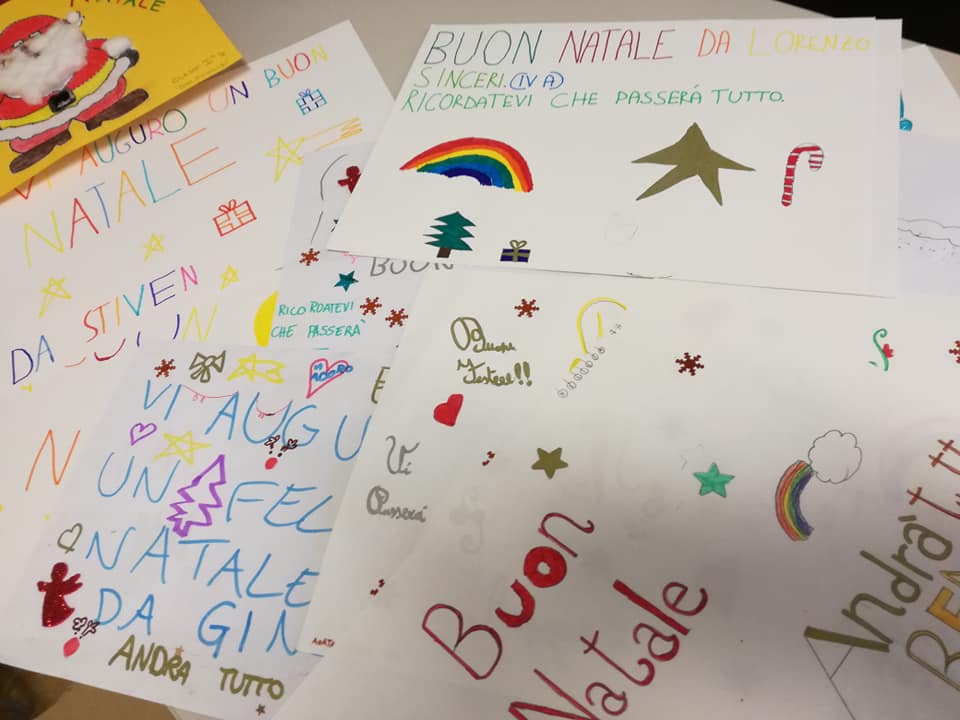 NATALE
VI AUGURO UN BUON
NATALE
DA STIVEN
BUON NATALE DA LORENZO
SINCERI. (IV A)
RICORDATEVI CHE PASSERÁ TUTTO.
BUON
RICORDATEVI
CHE PASSERÀ
VI AUGU
UN FEL
NATALE
DA GIN
ANDRA TUTTO
Buone
Feste!!
Vi
Passerá
Buon
Natale
Andrà tutt